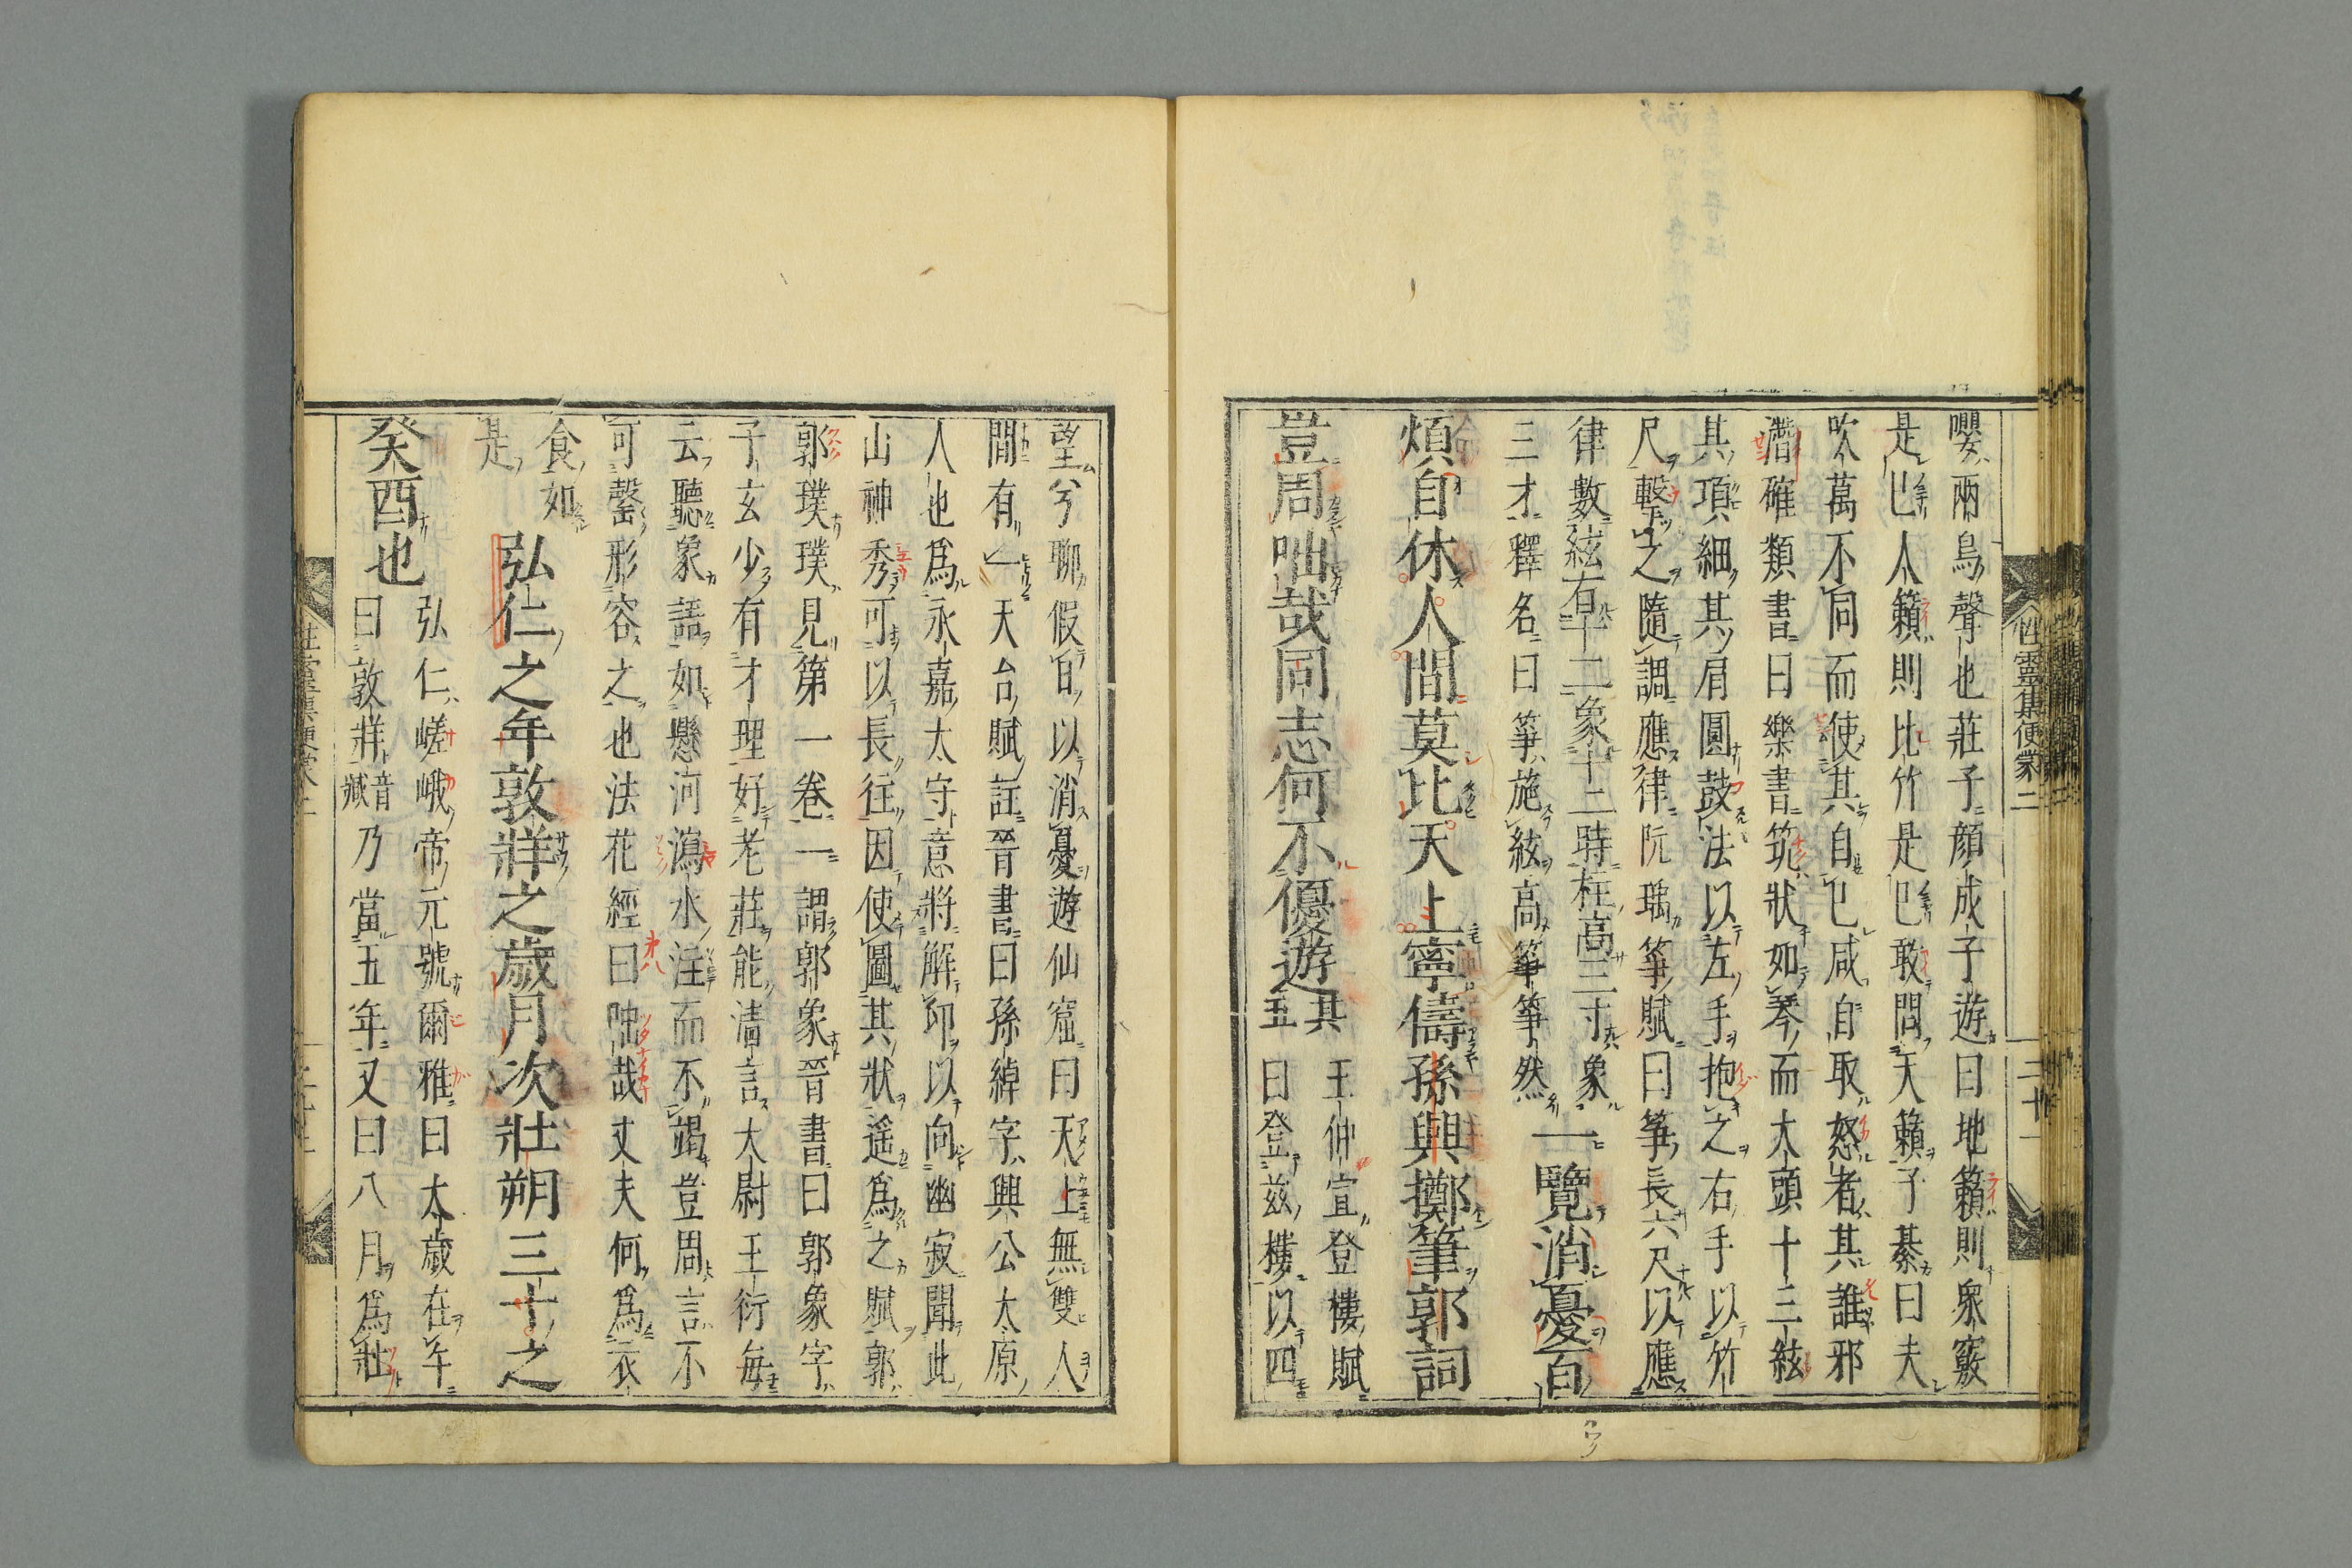 嚶兩鳥聲也莊子顔成子遊曰地籟則衆竅
是巳人籟則比竹是巳敢問天籟子綦曰夫
吹萬不同而使其自巳咸自取怒者其誰邪
潛確類書曰樂書筑狀如琴而大頭十三絃
其項細其肩圓鼓法以左手抱之右手以竹
尺擊之隨調應律阮瑀箏賦曰箏長六尺以應
律數絃有十二象十二時柱高三寸象
三才釋名曰箏施絃高箏箏然
一覽消憂百
煩自休人間莫比天上寧儔孫興擲筆郭詞
豈周咄哉同志何不優遊其五
王仲宣登樓賦
曰登茲樓以四
性靈集便蒙二
二十一
望兮聊假日以消憂遊仙窟曰天上無雙人
間有一天台賦註晉書曰孫綽字興公太原
人也為永嘉太守意將解印以向幽寂聞此
山神秀可以長往因使圖其狀遙為之賦郭
郭璞璞見第一卷一謂郭象晉書曰郭象字
子玄少有才理好老莊能清言大尉王衍每
云聽象語如懸河瀉水注而不竭豈周言不
可罄形容之也法花經曰咄哉丈夫何為衣
食如
是
弘仁之年敦牂之歲月次壯朔三十之
癸酉也
弘仁嵯峨帝元號爾雅曰太歲在午
曰敦牂音臧乃當五年又曰八月為壯